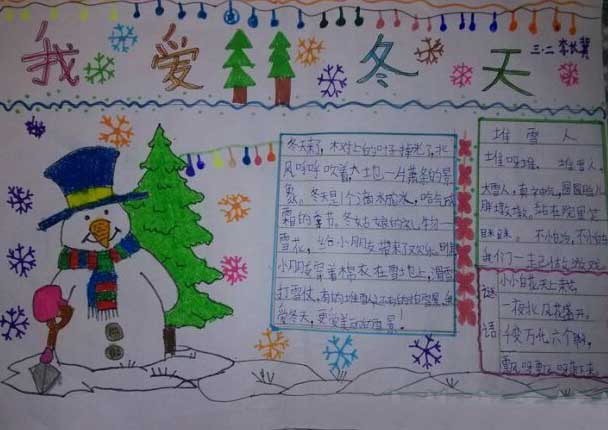 我爱冬天
三·二 李
冬天来了,树上的叶子掉光了,北
风呼呼吹着,大地一片萧条的景
象。冬天是个滴水成冰,哈气成
霜的季节。冬姑娘的礼物—
雪花,给小朋友带来了欢乐。
小朋友穿着棉衣在雪地上,滑雪
打雪仗,有的堆雪人有的拍雪景,我
爱冬天,更爱美丽的雪景!
堆雪人
堆呀堆,堆雪人,
大雪人,真神气,圆圆脸儿
胖墩墩,站在院里笑
眯眯。不怕冷,不怕
我们一起
谜语
小小白花天上栽
一夜北风花盛开。
千变万化六个瓣,